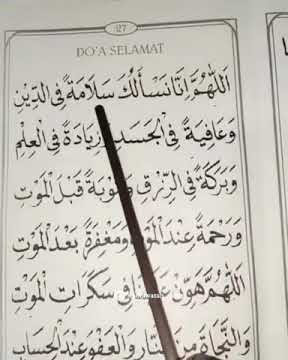 27
DO'A SELAMAT
اَللّٰهُمَّ اِنَّا نَسْأَلُكَ سَلَامَةً فِى الدِّيْنِ
وَعَافِيَةً فِى الْجَسَدِ زِيَادَةً فِى الْعِلْمِ
وَبَرَكَةً فِى الرِّزْقِ قَبْلَ الْمَوْتِ
وَرَحْمَةً عِنْدَ وَمَغْفِرَةً بَعْدَ الْمَوْتِ
اَللّٰهُمَّ هَوِّنْ فِى سَكَرَاتِ الْمَوْتِ
وَالنَّجَاةَ وَالْعَفْوَ عِنْدَ الْحِسَابِ